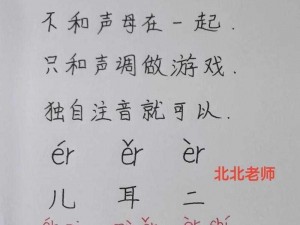 不和声母在一起.
只和声调做游戏.
独自注音就可以.
ér ěr èr
儿 耳 二
北北老师